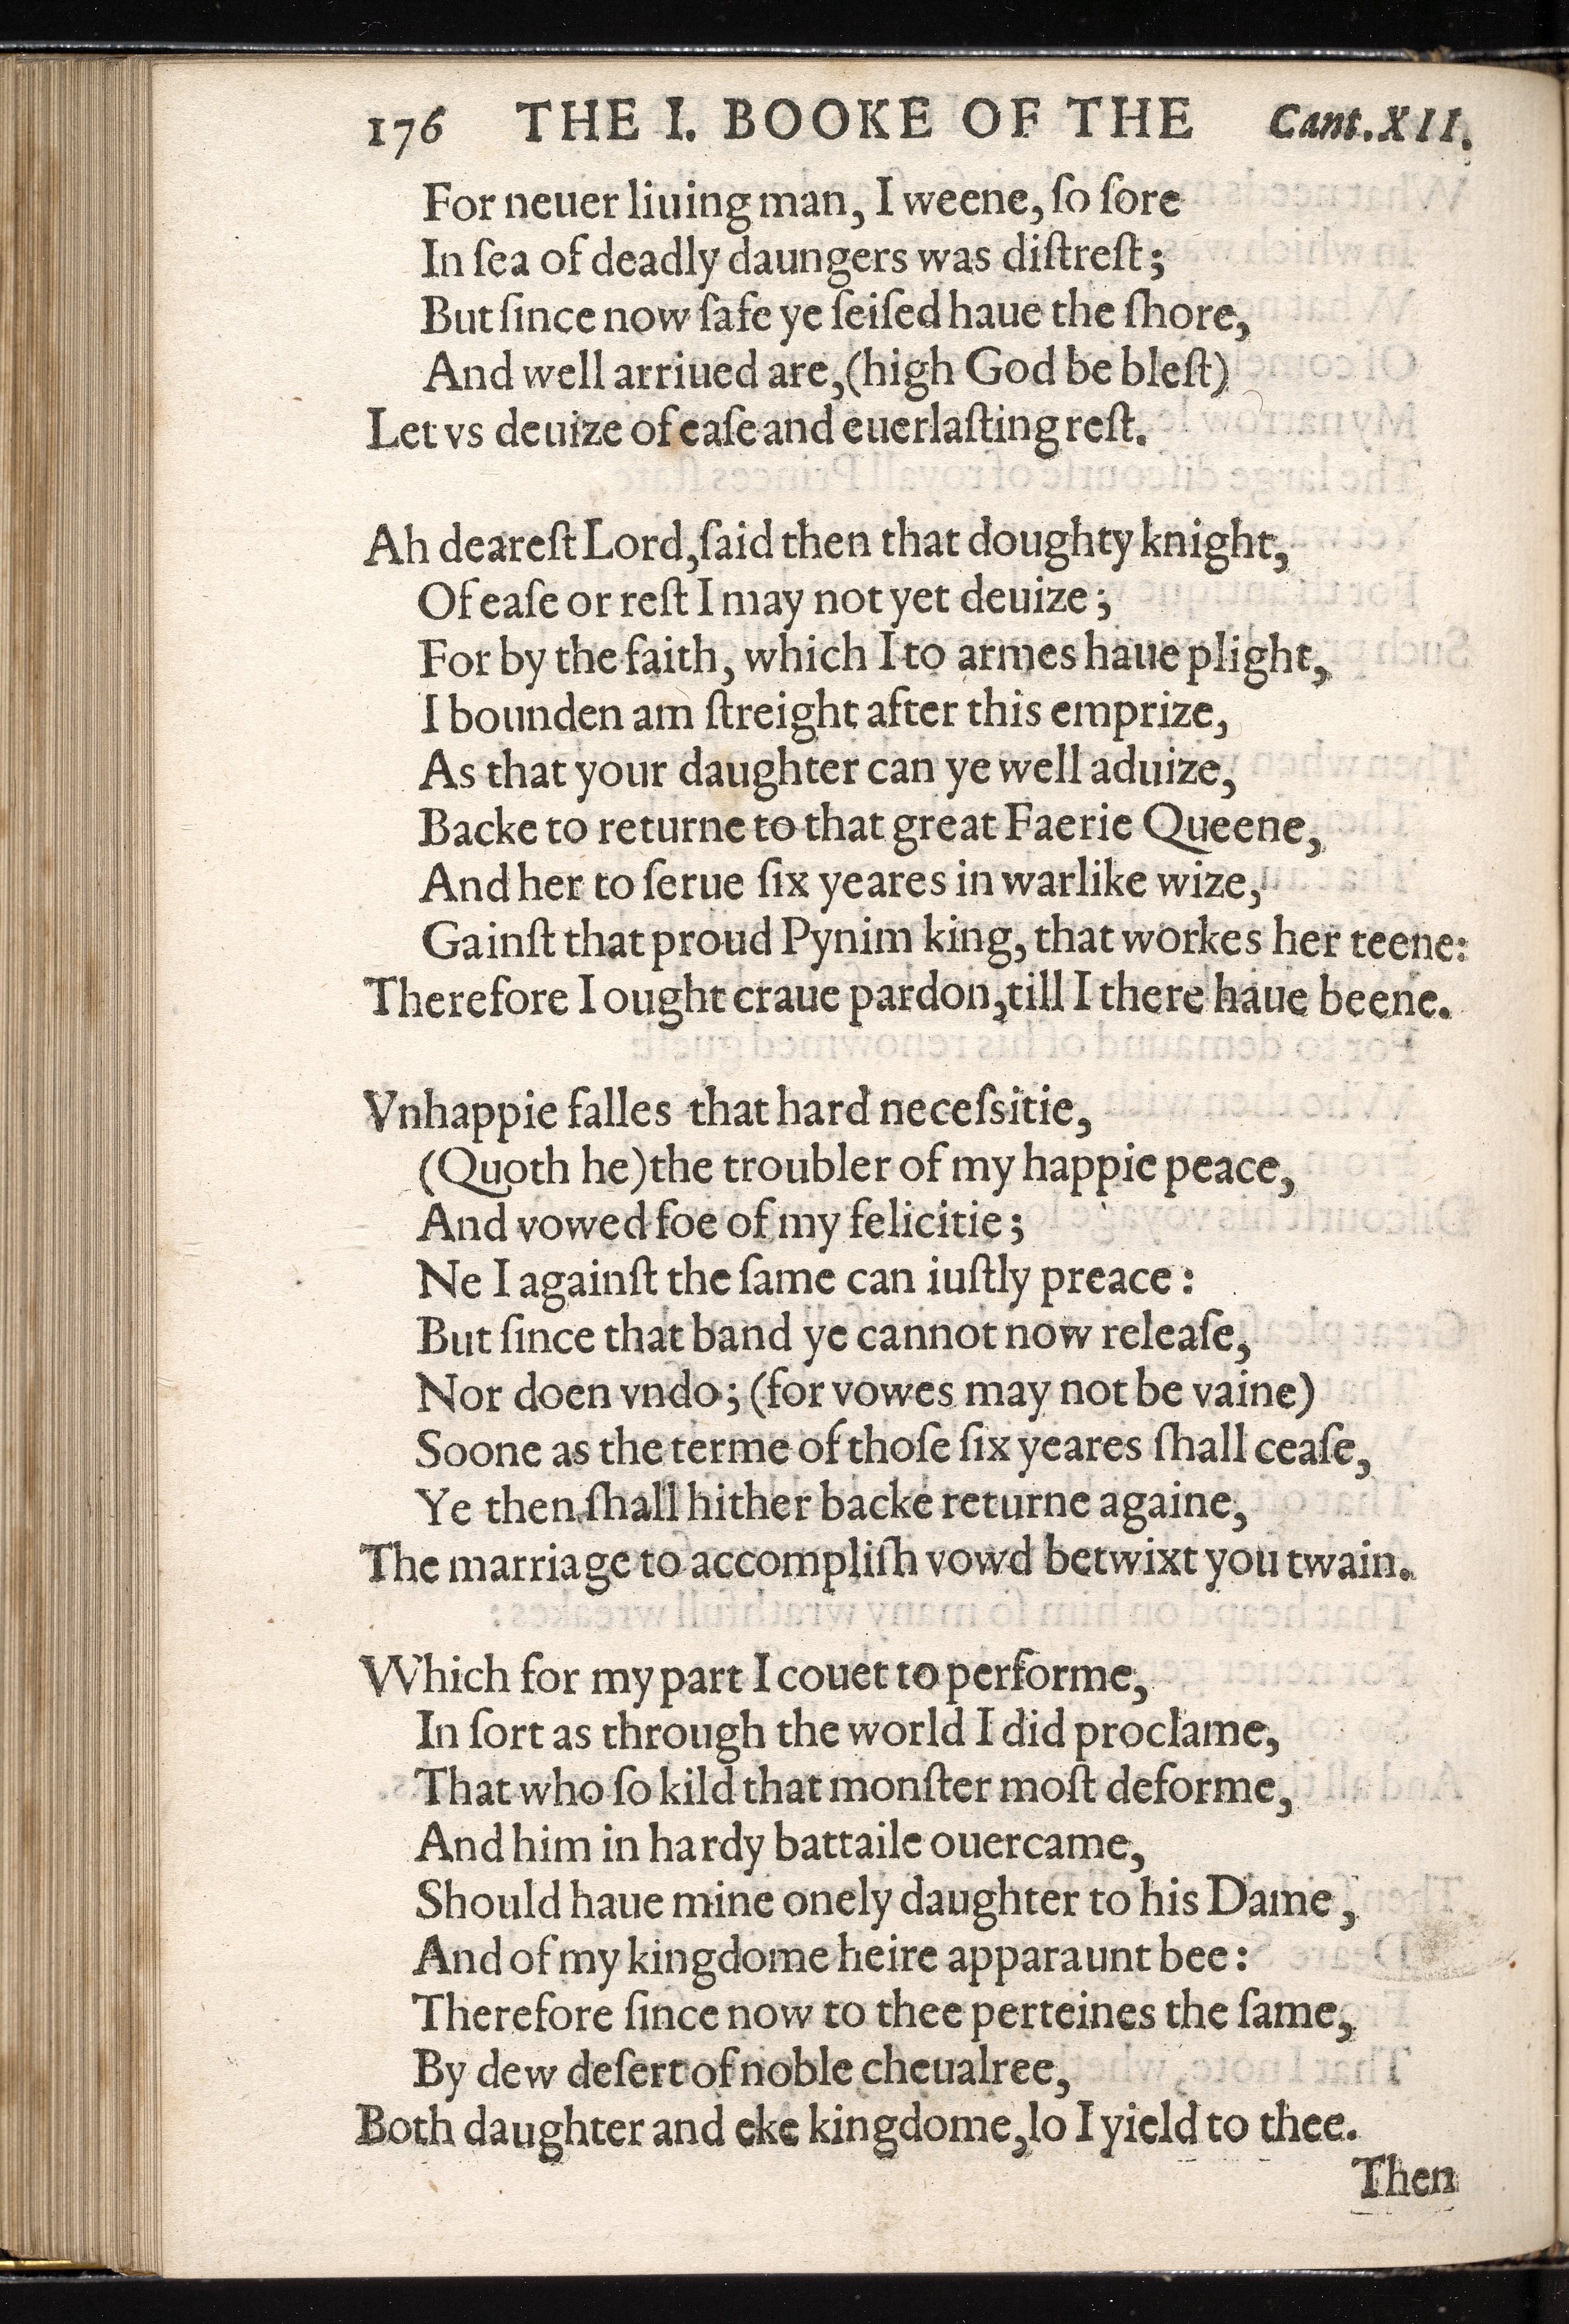 176 THE I. BOOKE OF THE Cant.XII.
For neuer liuing man, I weene, ſo ſore
In ſea of deadly daungers was diſtreſt;
But ſince now ſafe ye ſeiſed haue the ſhore,
And well arriued are,(high God be bleſt)
Let vs deuize of eaſe and euerlaſting reſt.

Ah deareſt Lord,ſaid then that doughty knight,
Of eaſe or reſt I may not yet deuize;
For by the faith, which I to armes haue plight,
I bounden am ſtreight after this emprize,
As that your daughter can ye well aduize,
Backe to returne to that great Faerie Queene,
And her to ſerue ſix yeares in warlike wize,
Gainſt that proud Pynim king, that workes her teene:
Therefore I ought craue pardon,till I there haue beene.

Vnhappie falles that hard neceſsitie,
(Quoth he)the troubler of my happie peace,
And vowed foe of my felicitie;
Ne I againſt the ſame can iuſtly preace:
But ſince that band ye cannot now releaſe,
Nor doen vndo; (for vowes may not be vaine)
Soone as the terme of thoſe ſix yeares ſhall ceaſe,
Ye then ſhall hither backe returne againe,
The marriage to accompliſh vowd betwixt you twain.

Which for my part I couet to performe,
In ſort as through the world I did proclame,
That who ſo kild that monſter moſt deforme,
And him in hardy battaile ouercame,
Should haue mine onely daughter to his Dame,
And of my kingdome heire apparaunt bee:
Therefore ſince now to thee perteines the ſame,
By dew deſert of noble cheualree,
Both daughter and eke kingdome,lo I yield to thee.
Then